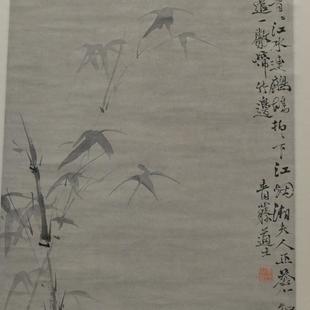 江水連鷓鴣拍〻下江烟湘夫人正蒼
遣一聲啼竹邊
青藤道士